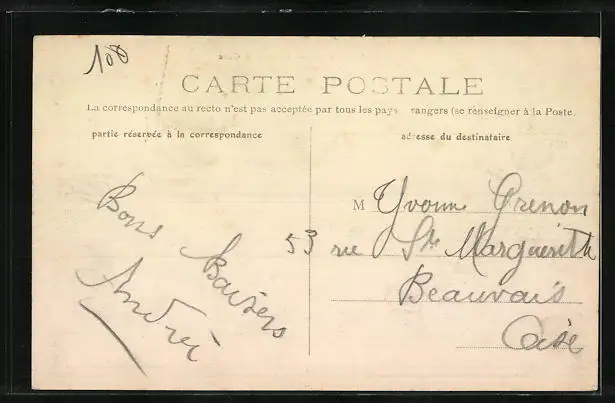 100
CARTE POSTALE
La correspondance au recto n'est pas acceptée par tous les pays rangers (se renseigner à la Poste.
partie réservée à la correspondance
adresse du destinataire
Bons Baisers
André
M Yvonne Grenon
53 rue Ste Marguerite
Beauvais
Oise